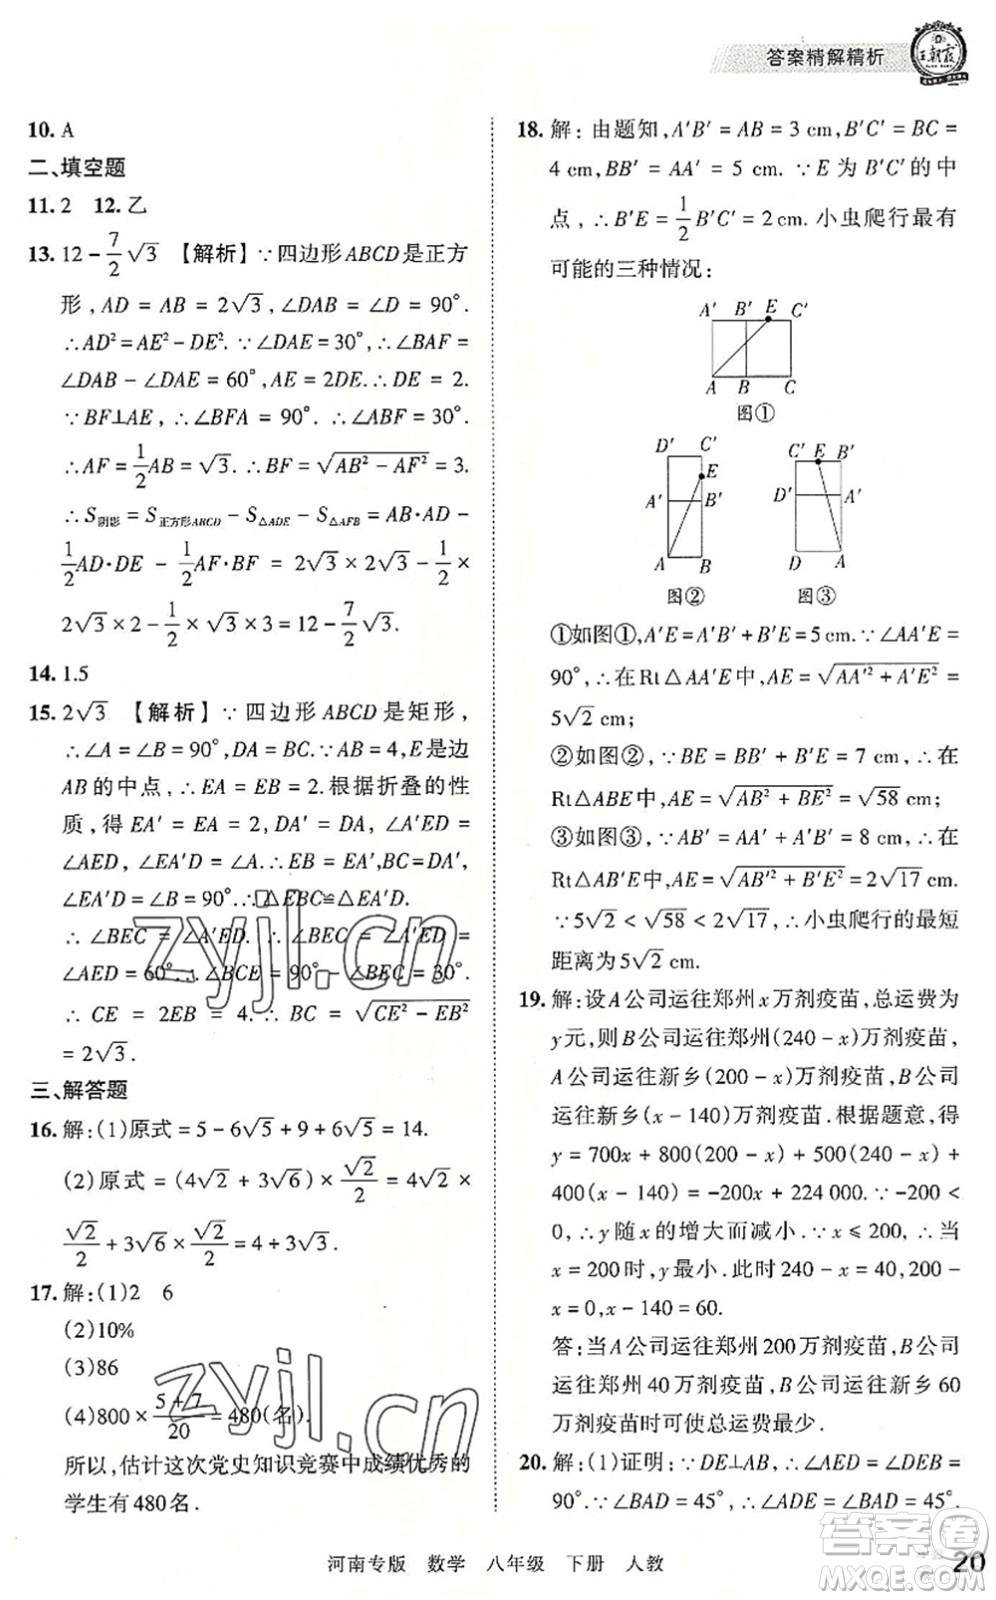 答案精解精析
王朝霞
10. A
二、填空题
11. 2   12. 乙
13. 12 - 7/2 √3 【解析】∵四边形ABCD是正方
形, AD = AB = 2√3, ∠DAB = ∠D = 90°.
∴AD² = AE² - DE². ∵∠DAE = 30°, ∴∠BAF =
∠DAB - ∠DAE = 60°, AE = 2DE. ∴DE = 2.
∵BF⊥AE, ∴∠BFA = 90°. ∴∠ABF = 30°.
∴AF = 1/2 AB = √3. ∴BF = √(AB² - AF²) = 3.
∴S阴影 = S正方形ABCD - S△ADE - S△AFB = AB·AD -
1/2 AD·DE - 1/2 AF·BF = 2√3 × 2√3 - 1/2 ×
2√3 × 2 - 1/2 × √3 × 3 = 12 - 7/2 √3.
14. 1.5
15. 2√3 【解析】∵四边形ABCD是矩形,
∴∠A = ∠B = 90°, DA = BC. ∵AB = 4, E是边
AB的中点, ∴EA = EB = 2. 根据折叠的性
质, 得EA′ = EA = 2, DA′ = DA, ∠A′ED =
∠AED, ∠EA′D = ∠A. ∴EB = EA′, BC = DA′,
∠EA′D = ∠B = 90°. ∴△EBC≌△EA′D.
∴∠BEC = ∠A′ED. ∴∠BEC = ∠A′ED =
∠AED = 60°. ∴∠BCE = 90° - ∠BEC = 30°.
∴CE = 2EB = 4. ∴BC = √(CE² - EB²)
= 2√3.
三、解答题
16. 解:(1)原式 = 5 - 6√5 + 9 + 6√5 = 14.
(2)原式 = (4√2 + 3√6) × √2/2 = 4√2 ×
√2/2 + 3√6 × √2/2 = 4 + 3√3.
17. 解:(1)2   6
(2)10%
(3)86
(4)800 × (5 + 7)/20 = 480(名).
所以, 估计这次党史知识竞赛中成绩优秀的
学生有480名.
18. 解: 由题知, A′B′ = AB = 3 cm, B′C′ = BC =
4 cm, BB′ = AA′ = 5 cm. ∵E为B′C′的中
点, ∴B′E = 1/2 B′C′ = 2 cm. 小虫爬行最有
可能的三种情况:
A′ B′ E C′
A B C
图①
D′ C′
E
A′ B′
A B
图②
C′ E B′
D′ A′
D A
图③
①如图①, A′E = A′B′ + B′E = 5 cm. ∵∠AA′E =
90°, ∴在Rt△AA′E中, AE = √(AA′² + A′E²) =
5√2 cm;
②如图②, ∵BE = BB′ + B′E = 7 cm, ∴在
Rt△ABE中, AE = √(AB² + BE²) = √58 cm;
③如图③, ∵AB′ = AA′ + A′B′ = 8 cm, ∴在
Rt△AB′E中, AE = √(AB′² + B′E²) = 2√17 cm.
∵5√2 < √58 < 2√17, ∴小虫爬行的最短
距离为5√2 cm.
19. 解: 设A公司运往郑州x万剂疫苗, 总运费为
y元, 则B公司运往郑州(240 - x)万剂疫苗,
A公司运往新乡(200 - x)万剂疫苗, B公司
运往新乡(x - 140)万剂疫苗. 根据题意, 得
y = 700x + 800(240 - x) + 500(200 - x) +
400(x - 140) = -200x + 224 000. ∵-200 <
0, ∴y随x的增大而减小. ∵x ≤ 200, ∴当
x = 200时, y最小. 此时240 - x = 40, 200 -
x = 0, x - 140 = 60.
答: 当A公司运往郑州200万剂疫苗, B公司
运往郑州40万剂疫苗, B公司运往新乡60
万剂疫苗时可使总运费最少.
20. 解:(1)证明: ∵DE⊥AB, ∴∠AED = ∠DEB =
90°. ∵∠BAD = 45°, ∴∠ADE = ∠BAD = 45°.
zyjl.cn
zyjl.cn
答案卷
MXQE.COM
河南专版   数学   八年级   下册   人教
20